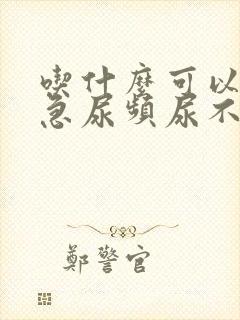 喫什麼可以
急尿頻尿不
鄭警官